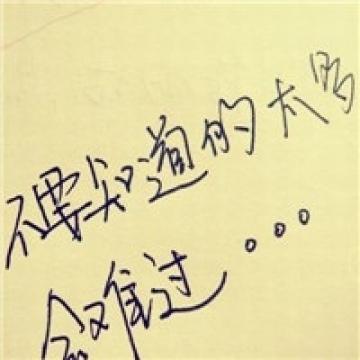 不要知道的太多
会难过。。。